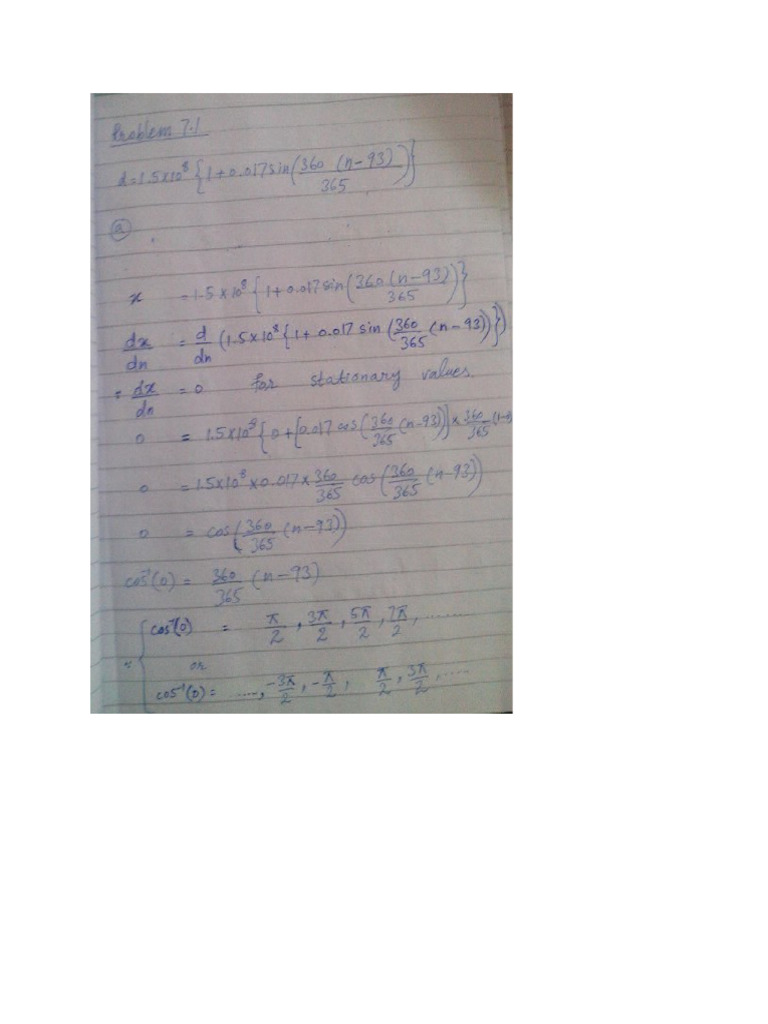 Problem 7.1
d = 1.5×10⁸ {1 + 0.017 sin(360 (n−93)/365)}
(a)
x = 1.5×10⁸ {1 + 0.017 sin(360 (n−93)/365)}
dx/dn = d/dn (1.5×10⁸ {1 + 0.017 sin (360/365 (n−93))})
= dx/dn = 0 for stationary values.
0 = 1.5×10⁸ {0 + [0.017 cos(360/365 (n−93))] × 360/365 (1−0)
0 = 1.5×10⁸ × 0.017 × 360/365 cos(360/365 (n−93))
0 = cos(360/365 (n−93))
cos⁻¹(0) = 360/365 (n−93)
∵ { cos⁻¹(0) = π/2, 3π/2, 5π/2, 7π/2, .......
or
cos⁻¹(0) = ....., −3π/2, −π/2, π/2, 3π/2, .....